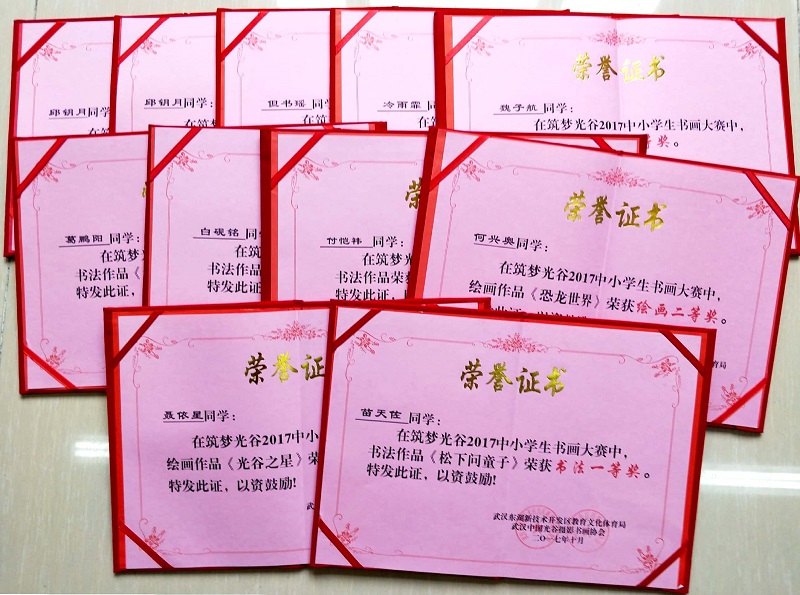 邱钥月同学：
邱钥月同学：
但书瑶 同
冷雨霏同学：
荣誉证书
魏子航 同学：
在筑梦光谷2017中小学生书画大赛中，
等奖。
葛鹏阳同学：
在筑梦
书法作品《
特发此证，
白砚铭同
在筑
书法作品
特发此证
付恺祎 同学：
在筑梦
书法作品荣
特发此证，
荣誉证书
何兴奥同学：
在筑梦光谷2017中小学生书画大赛中，
绘画作品《恐龙世界》荣获绘画二等奖。
荣誉证
聂依星同学：
在筑梦光谷2017中小
绘画作品《光谷之星》荣
特发此证，以资鼓励！
荣誉证书
苗天佐 同学：
在筑梦光谷2017中小学生书画大赛中，
书法作品《松下问童子》荣获书法一等奖。
特发此证，以资鼓励！
武汉东湖新技术开发区教育文化体育局
武汉中国光谷摄影书画协会
二〇一七年十月